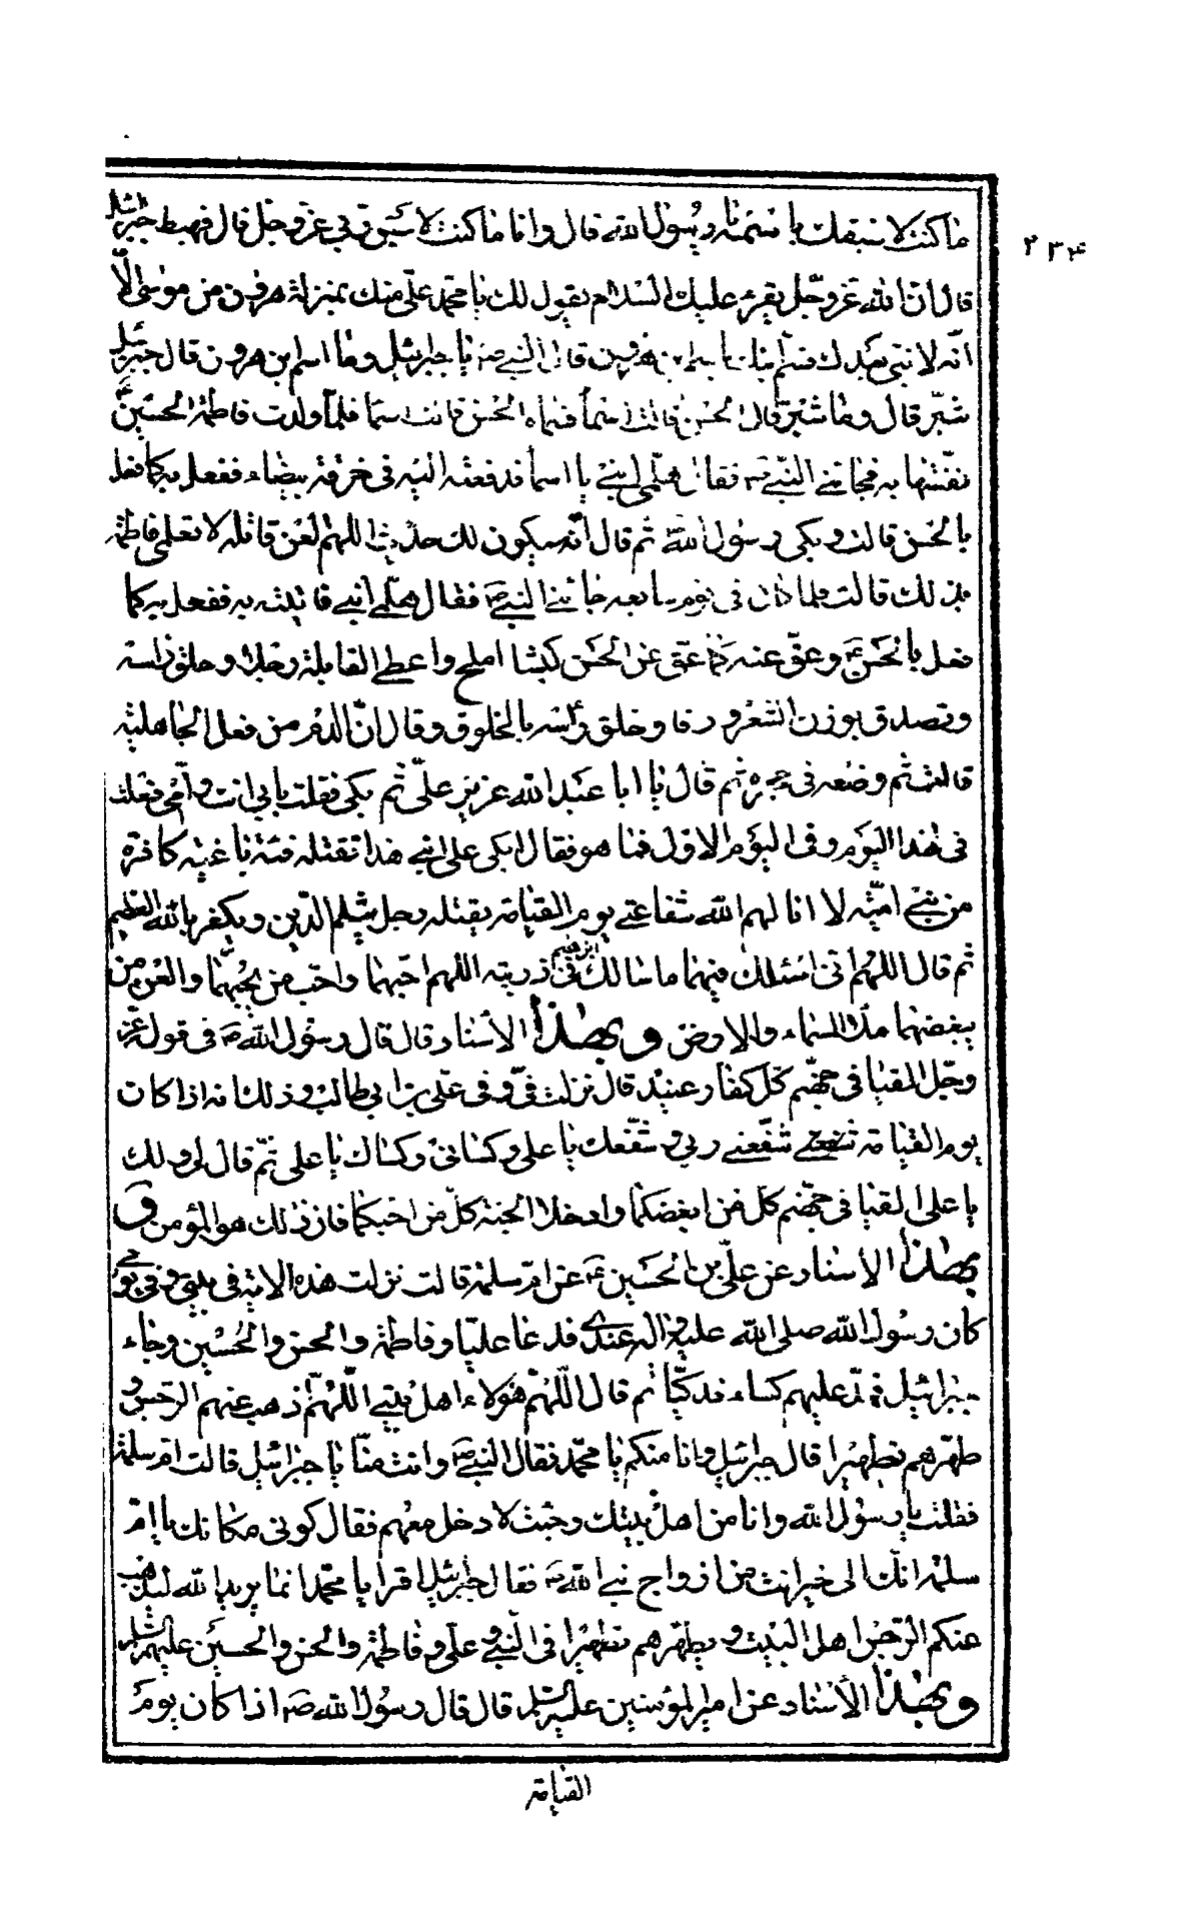 ٢٣٤
ما كنت لاسبقك باسمه يا رسول الله قال وانا ما كنت لاسبق ربي عز وجل قال فهبط جبرائيل
قال ان الله عز وجل يقرء عليك السلام يقول لك يا محمد علي منك بمنزلة هرون من موسى الا
انه لا نبي بعدك فسم ابنك باسم ابن هرون قال النبي ص يا جبرئيل وما اسم ابن هرون قال جبرئيل
شبر قال وما شبر قال الحسن قالت اسما فسماه الحسن قالت اسما فلما ولدت فاطمة الحسين ع
نفستها به فجائني النبي ص فقال هلمي ابني يا اسما فدفعته اليه في خرقة بيضاء ففعل به كما فعل
بالحسن قالت وبكى رسول الله ثم قال انه سيكون لك حديث اللهم العن قاتله لا تعلمي فاطمة
بذلك قالت فلما كان في يوم سابعه جائني النبي ص فقال هلمي ابني فاتيته به ففعل به كما
فعل بالحسن ع وعق عنه كما عق عن الحسن كبشا املح واعطى القابلة رجلا وحلق راسه
وتصدق بوزن الشعر ورقا وخلق راسه بالخلوق وقال ان الدم من فعل الجاهلية
قالت ثم وضعه في حجره ثم قال يا ابا عبد الله عزيز علي ثم بكى فقلت بابي انت وامي فعلت
في هذا اليوم وفي اليوم الاول فما هو فقال ابكي على ابني هذا تقتله فئة باغية كافرة
من بني امية لا انا لهم الله شفاعتي يوم القيامة يقتله رجل يثلم الدين ويكفر بالله العظيم
ثم قال اللهم اني اسئلك فيهما ما سالك ابراهيم في ذريته اللهم احبهما واحب من يحبهما والعن من
يبغضهما ملأ السماء والارض وبهذا الاسناد قال قال رسول الله ص في قول عز
وجل القيا في جهنم كل كفار عنيد قال نزلت في وفي علي بن ابي طالب وذلك انه اذا كان
يوم القيامة شفعني ربي وشفعك يا علي وكساني وكساك يا علي ثم قال لي ولك
يا علي القيا في جهنم كل من ابغضكما وادخلا الجنة كل من احبكما فان ذلك هو المؤمن و
بهذا الاسناد عن علي بن الحسين ع عن ام سلمة قالت نزلت هذه الاية في بيتي وفي يومي
كان رسول الله صلى الله عليه واله عندي فدعا عليا وفاطمة والحسن والحسين وجاء
جبرائيل فمد عليهم كساء فدكيا ثم قال اللهم هؤلاء اهل بيتي اللهم اذهب عنهم الرجس و
طهرهم تطهيرا قال جبرائيل وانا منكم يا محمد فقال النبي ص وانت منا يا جبرائيل قالت ام سلمة
فقلت يا رسول الله وانا من اهل بيتك وجئت لادخل معهم فقال كوني مكانك يا ام
سلمة انك الى خير انت من ازواج نبي الله ص فقال جبرئيل اقرا يا محمد انما يريد الله ليذهب
عنكم الرجس اهل البيت ويطهركم تطهيرا في النبي وعلي وفاطمة والحسن والحسين عليهم السلام
وبهذا الاسناد عن امير المؤمنين عليه السلم قال قال رسول الله ص اذا كان يوم
القيامة